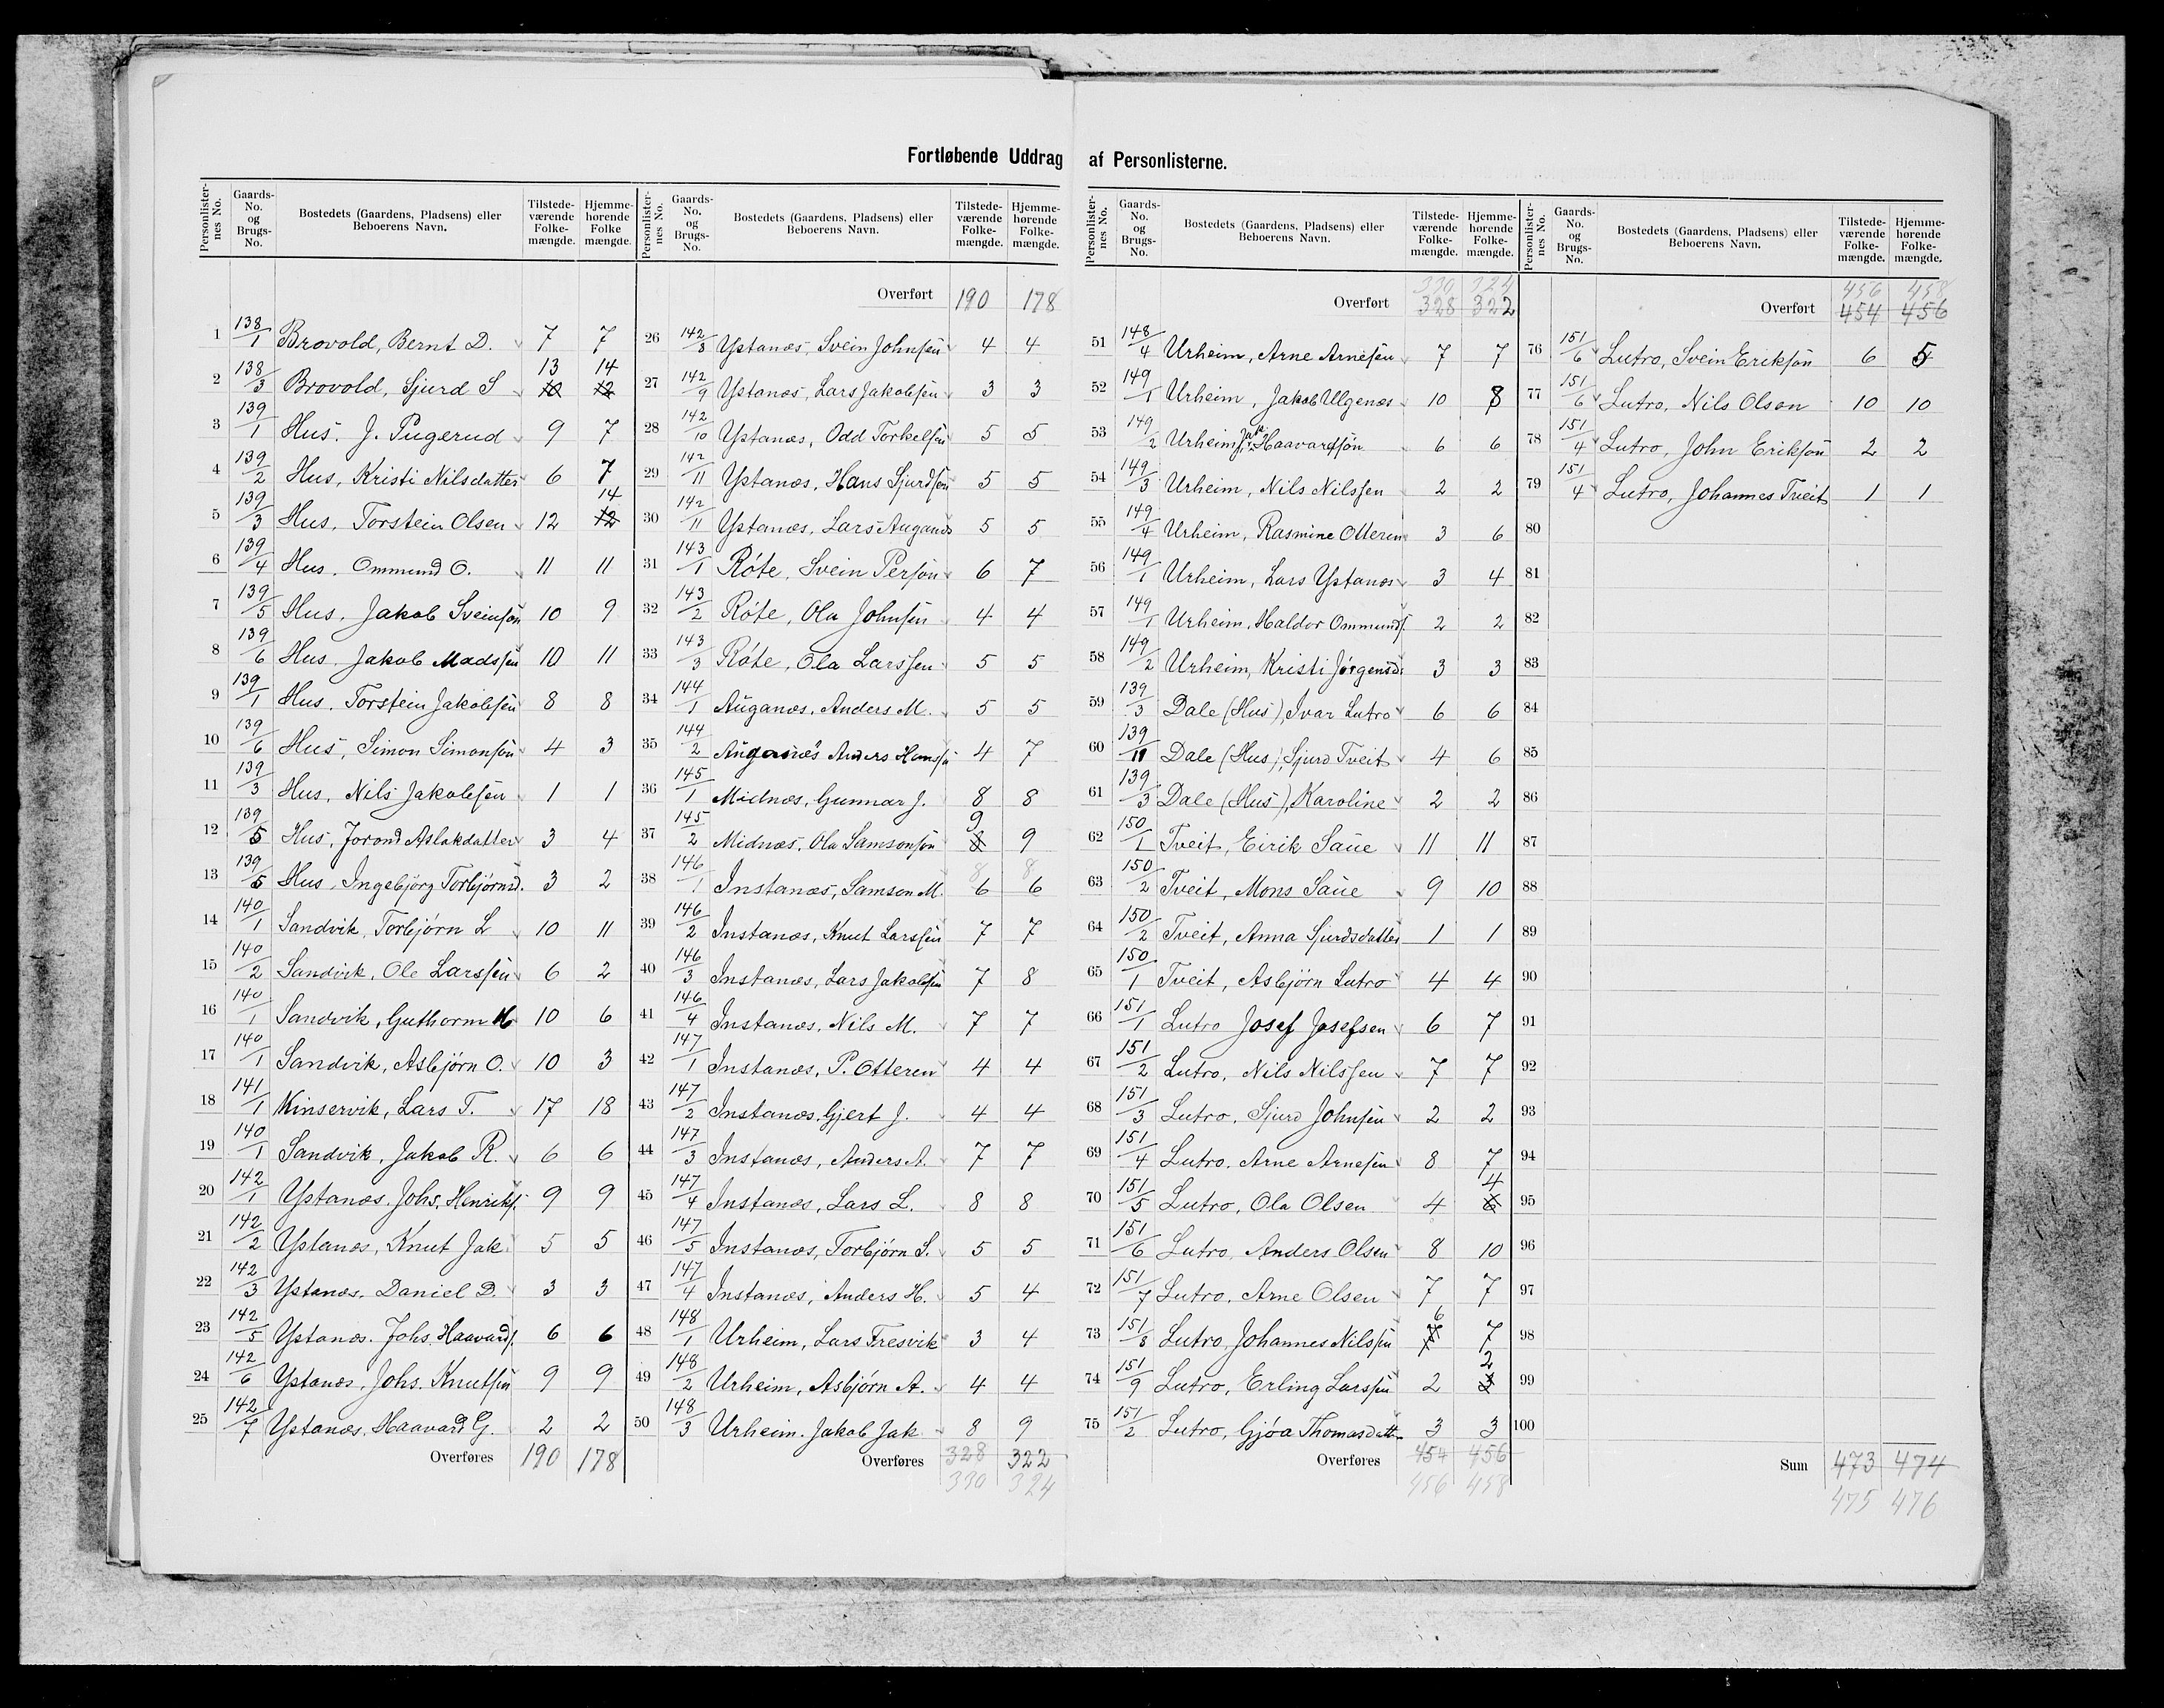 Fortløbende Uddrag af Personlisterne.
Personlisternes No. Gaards-No. og Brugs-No. Bostedets (Gaardens, Pladsens) eller Beboerens Navn. Tilstedeværende Folkemængde. Hjemmehørende Folkemængde.
1 138/1 Brovold, Bernt D. 7 7
2 138/3 Brovold, Sjurd S 10 13 12 14
3 139/1 Hus. J. Pugerud 9 7
4 139/2 Hus, Kristi Nilsdatter 6 7
5 139/3 Hus, Torstein Olsen 12 12 14
6 139/4 Hus. Ommund O. 11 11
7 139/5 Hus, Jakob Sveinsøn 10 9
8 139/6 Hus. Jakob Madssøn 10 11
9 139/1 Hus. Torstein Jakobsen 8 8
10 139/6 Hus, Simon Simonsøn 4 3
11 139/3 Hus, Nils Jakobsen 1 1
12 139/5 Hus, Jorond Aslakdatter 3 4
13 139/5 Hus, Ingebjørg Torbjørnsd. 3 2
14 140/1 Sandvik, Torbjørn L 10 11
15 140/2 Sandvik, Ole Larssen 6 2
16 140/1 Sandvik, Guthorm 10 6
17 140/1 Sandvik, Asbjørn O. 10 3
18 141/1 Kinservik, Lars T. 17 18
19 140/1 Sandvik, Jakob R. 6 6
20 142/1 Ystanæs, Johs. Henriks. 9 9
21 142/2 Ystanæs, Knut Jak. 5 5
22 142/3 Ystanæs, Daniel D. 3 3
23 142/5 Ystanæs. Johs. Haavards. 6 6
24 142/6 Ystanæs, Johs. Knutsen 9 9
25 142/7 Ystanæs, Haavard G. 2 2
Overføres 190 178
Personlisternes No. Gaards-No. og Brugs-No. Bostedets (Gaardens, Pladsens) eller Beboerens Navn. Tilstedeværende Folkemængde. Hjemmehørende Folkemængde.
Overført 190 178
26 142/3 Ystanæs, Svein Johnsen 4 4
27 142/9 Ystanæs, Lars Jakobsen 3 3
28 142/10 Ystanæs, Odd Torkelsen 5 5
29 142/11 Ystanæs, Hans Sjurdsøn 5 5
30 142/11 Ystanæs, Lars Auganæs 5 5
31 143/1 Røte, Svein Persøn 6 7
32 143/2 Røte, Ola Johnsen 4 4
33 143/3 Røte, Ola Larssen 5 5
34 144/1 Auganæs, Anders M. 5 5
35 144/2 Auganæs Anders Hanss. 4 7
36 145/1 Midnæs, Gunnar J. 8 8
37 145/2 Midnæs, Ola Samsonsøn 8 9 9
38 146/1 Instanæs, Samson M. 6 8 6 8
39 146/2 Instanæs, Knut Larssen 7 7
40 146/3 Instanæs, Lars Jakobsen 7 8
41 146/4 Instanæs, Nils M. 7 7
42 147/1 Instanæs, P. Otteren 4 4
43 147/2 Instanæs, Gjert J. 4 4
44 147/3 Instanæs, Anders A. 7 7
45 147/4 Instanæs, Lars L. 8 8
46 147/5 Instanæs, Torbjørn S. 5 5
47 147/4 Instanæs, Anders H. 5 4
48 148/1 Urheim, Lars Fresvik 3 4
49 148/2 Urheim, Asbjørn A. 4 4
50 148/3 Urheim. Jakob Jak 8 9
Overføres 328 322
330 324
Personlisternes No. Gaards-No. og Brugs-No. Bostedets (Gaardens, Pladsens) eller Beboerens Navn. Tilstedeværende Folkemængde. Hjemmehørende Folkemængde.
330 324
Overført 328 322
51 148/4 Urheim, Arne Arnesen 7 7
52 149/1 Urheim, Jakob Ulgenæs 10 8
53 149/2 Urheim, Jak. Haavardsøn 6 6
54 149/3 Urheim, Nils Nilssen 2 2
55 149/4 Urheim, Rasmine Otteren 3 6
56 149/1 Urheim, Lars Ystanæs 3 4
57 149/1 Urheim, Haldor Ommunds. 2 2
58 149/2 Urheim, Kristi Jørgensd. 3 3
59 139/3 Dale (Hus), Ivar Lutro 6 6
60 139/11 Dale (Hus), Sjurd Tveit 4 6
61 139/3 Dale (Hus), Karoline 2 2
62 150/1 Tveit, Eirik Saue 11 11
63 150/2 Tveit, Mons Saue 9 10
64 150/2 Tveit, Anna Sjurdsdatter 1 1
65 150/1 Tveit, Asbjørn Lutro 4 4
66 151/1 Lutro Josef Josefsen 6 7
67 151/2 Lutro, Nils Nilssen 7 7
68 151/3 Lutro, Sjurd Johnsen 2 2
69 151/4 Lutro. Arne Arnesen 8 7
70 151/5 Lutro, Ola Olsen 4 6 4
71 151/6 Lutro, Anders Olsen 8 10
72 151/7 Lutro, Arne Olsen 7 7
73 151/8 Lutro, Johannes Nilssen 7 6 7
74 151/9 Lutro, Erling Larssen 2 2
75 151/2 Lutro, Gjøa Thomasdatt. 3 3
Overføres 454 456
456 458
Personlisternes No. Gaards-No. og Brugs-No. Bostedets (Gaardens, Pladsens) eller Beboerens Navn. Tilstedeværende Folkemængde. Hjemmehørende Folkemængde.
456 458
Overført 454 456
76 151/6 Lutro, Svein Eriksøn 6 5
77 151/6 Lutro, Nils Olsen 10 10
78 151/4 Lutro, John Eriksøn 2 2
79 151/4 Lutro, Johannes Tveit 1 1
80
81
82
83
84
85
86
87
88
89
90
91
92
93
94
95
96
97
98
99
100
Sum 473 474
475 476